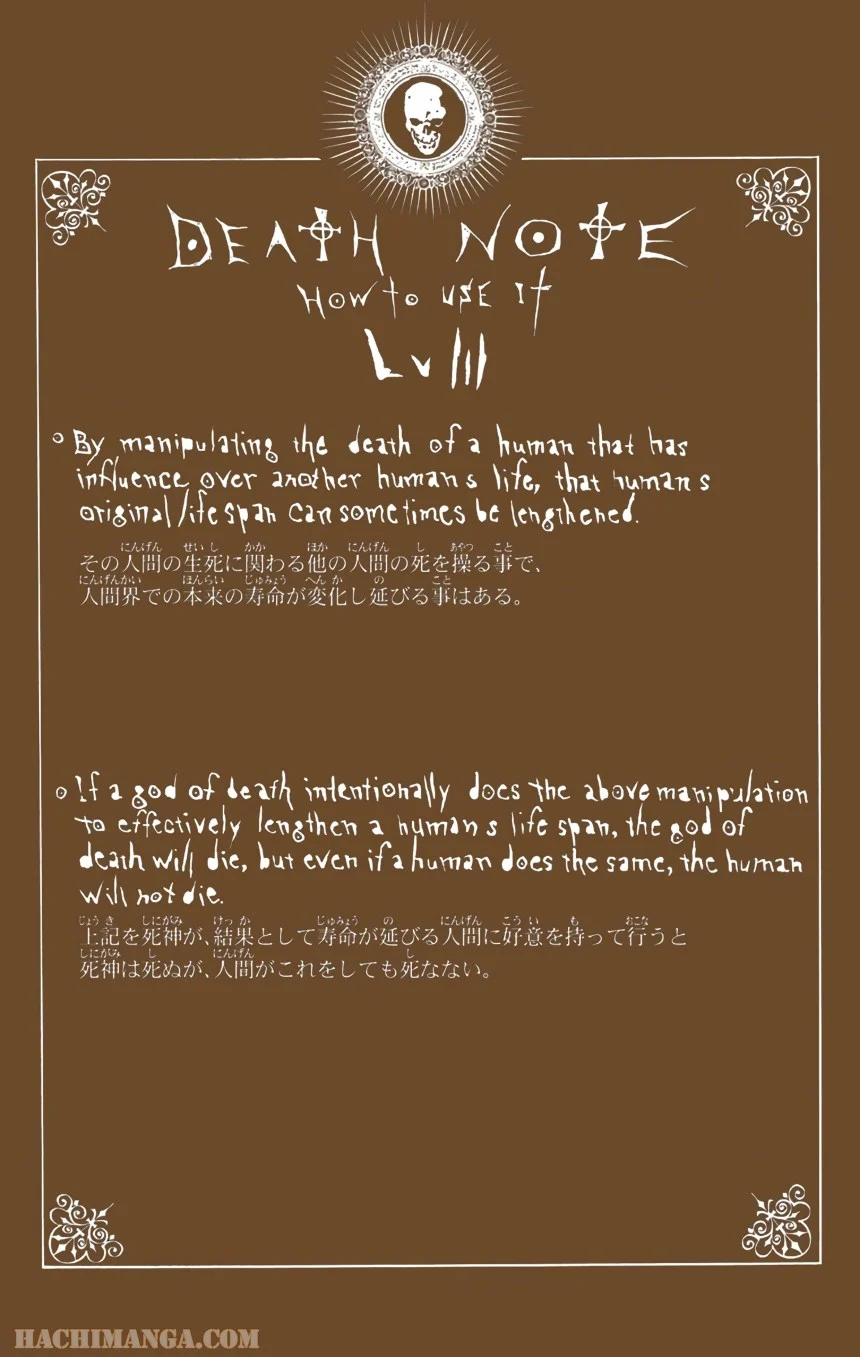 DEATH NOTE
HOW to USE It
LVIII
By manipulating the death of a human that has
influence over another humans life, that humans
original life span can sometimes be lengthened.
その人間の生死に関わる他の人間の死を操る事で、
人間界での本来の寿命が変化し延びる事はある。
If a god of death intentionally does the above manipulation
to effectively lengthen a humans life span, the god of
death will die, but even if a human does the same, the human
will not die.
上記を死神が、結果として寿命が延びる人間に好意を持って行うと
死神は死ぬが、人間がこれをしても死なない。
HACHIMANGA.COM